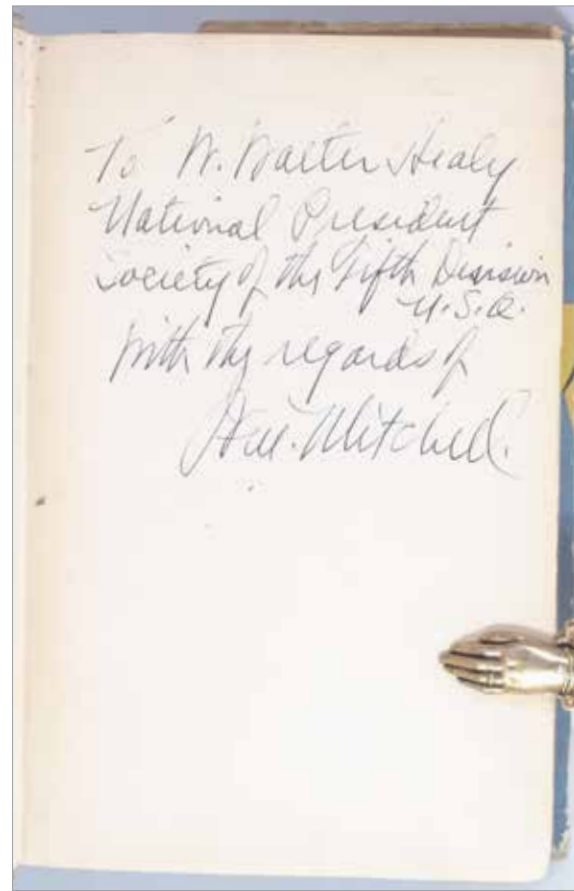 To W. Walter Healy
National President
Society of the Fifth Division
U.S.A.
With the regards of
Wm. Mitchell.